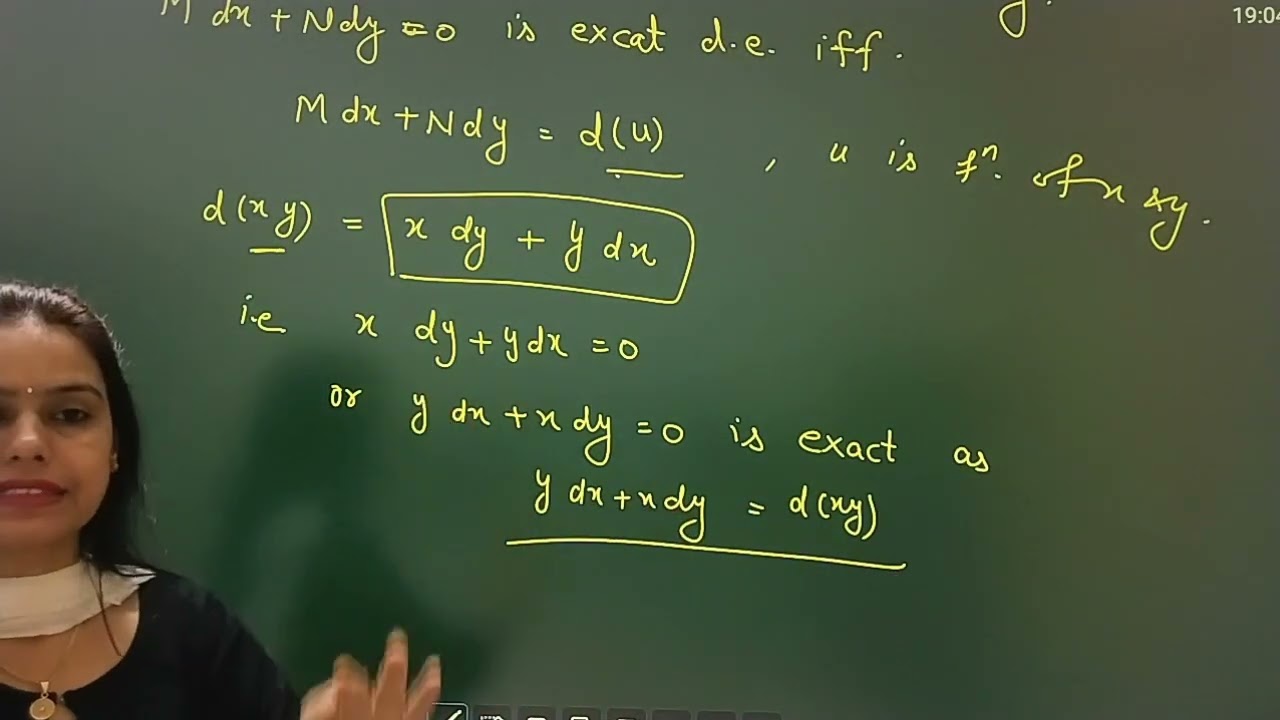 19:04
M dx + N dy = 0 is excat d.e. iff.
y.
M dx + N dy = d(u) , u is fⁿ. of x & y.
d(xy) = x dy + y dx
i.e x dy + y dx = 0
or y dx + x dy = 0 is exact as
y dx + x dy = d(xy)